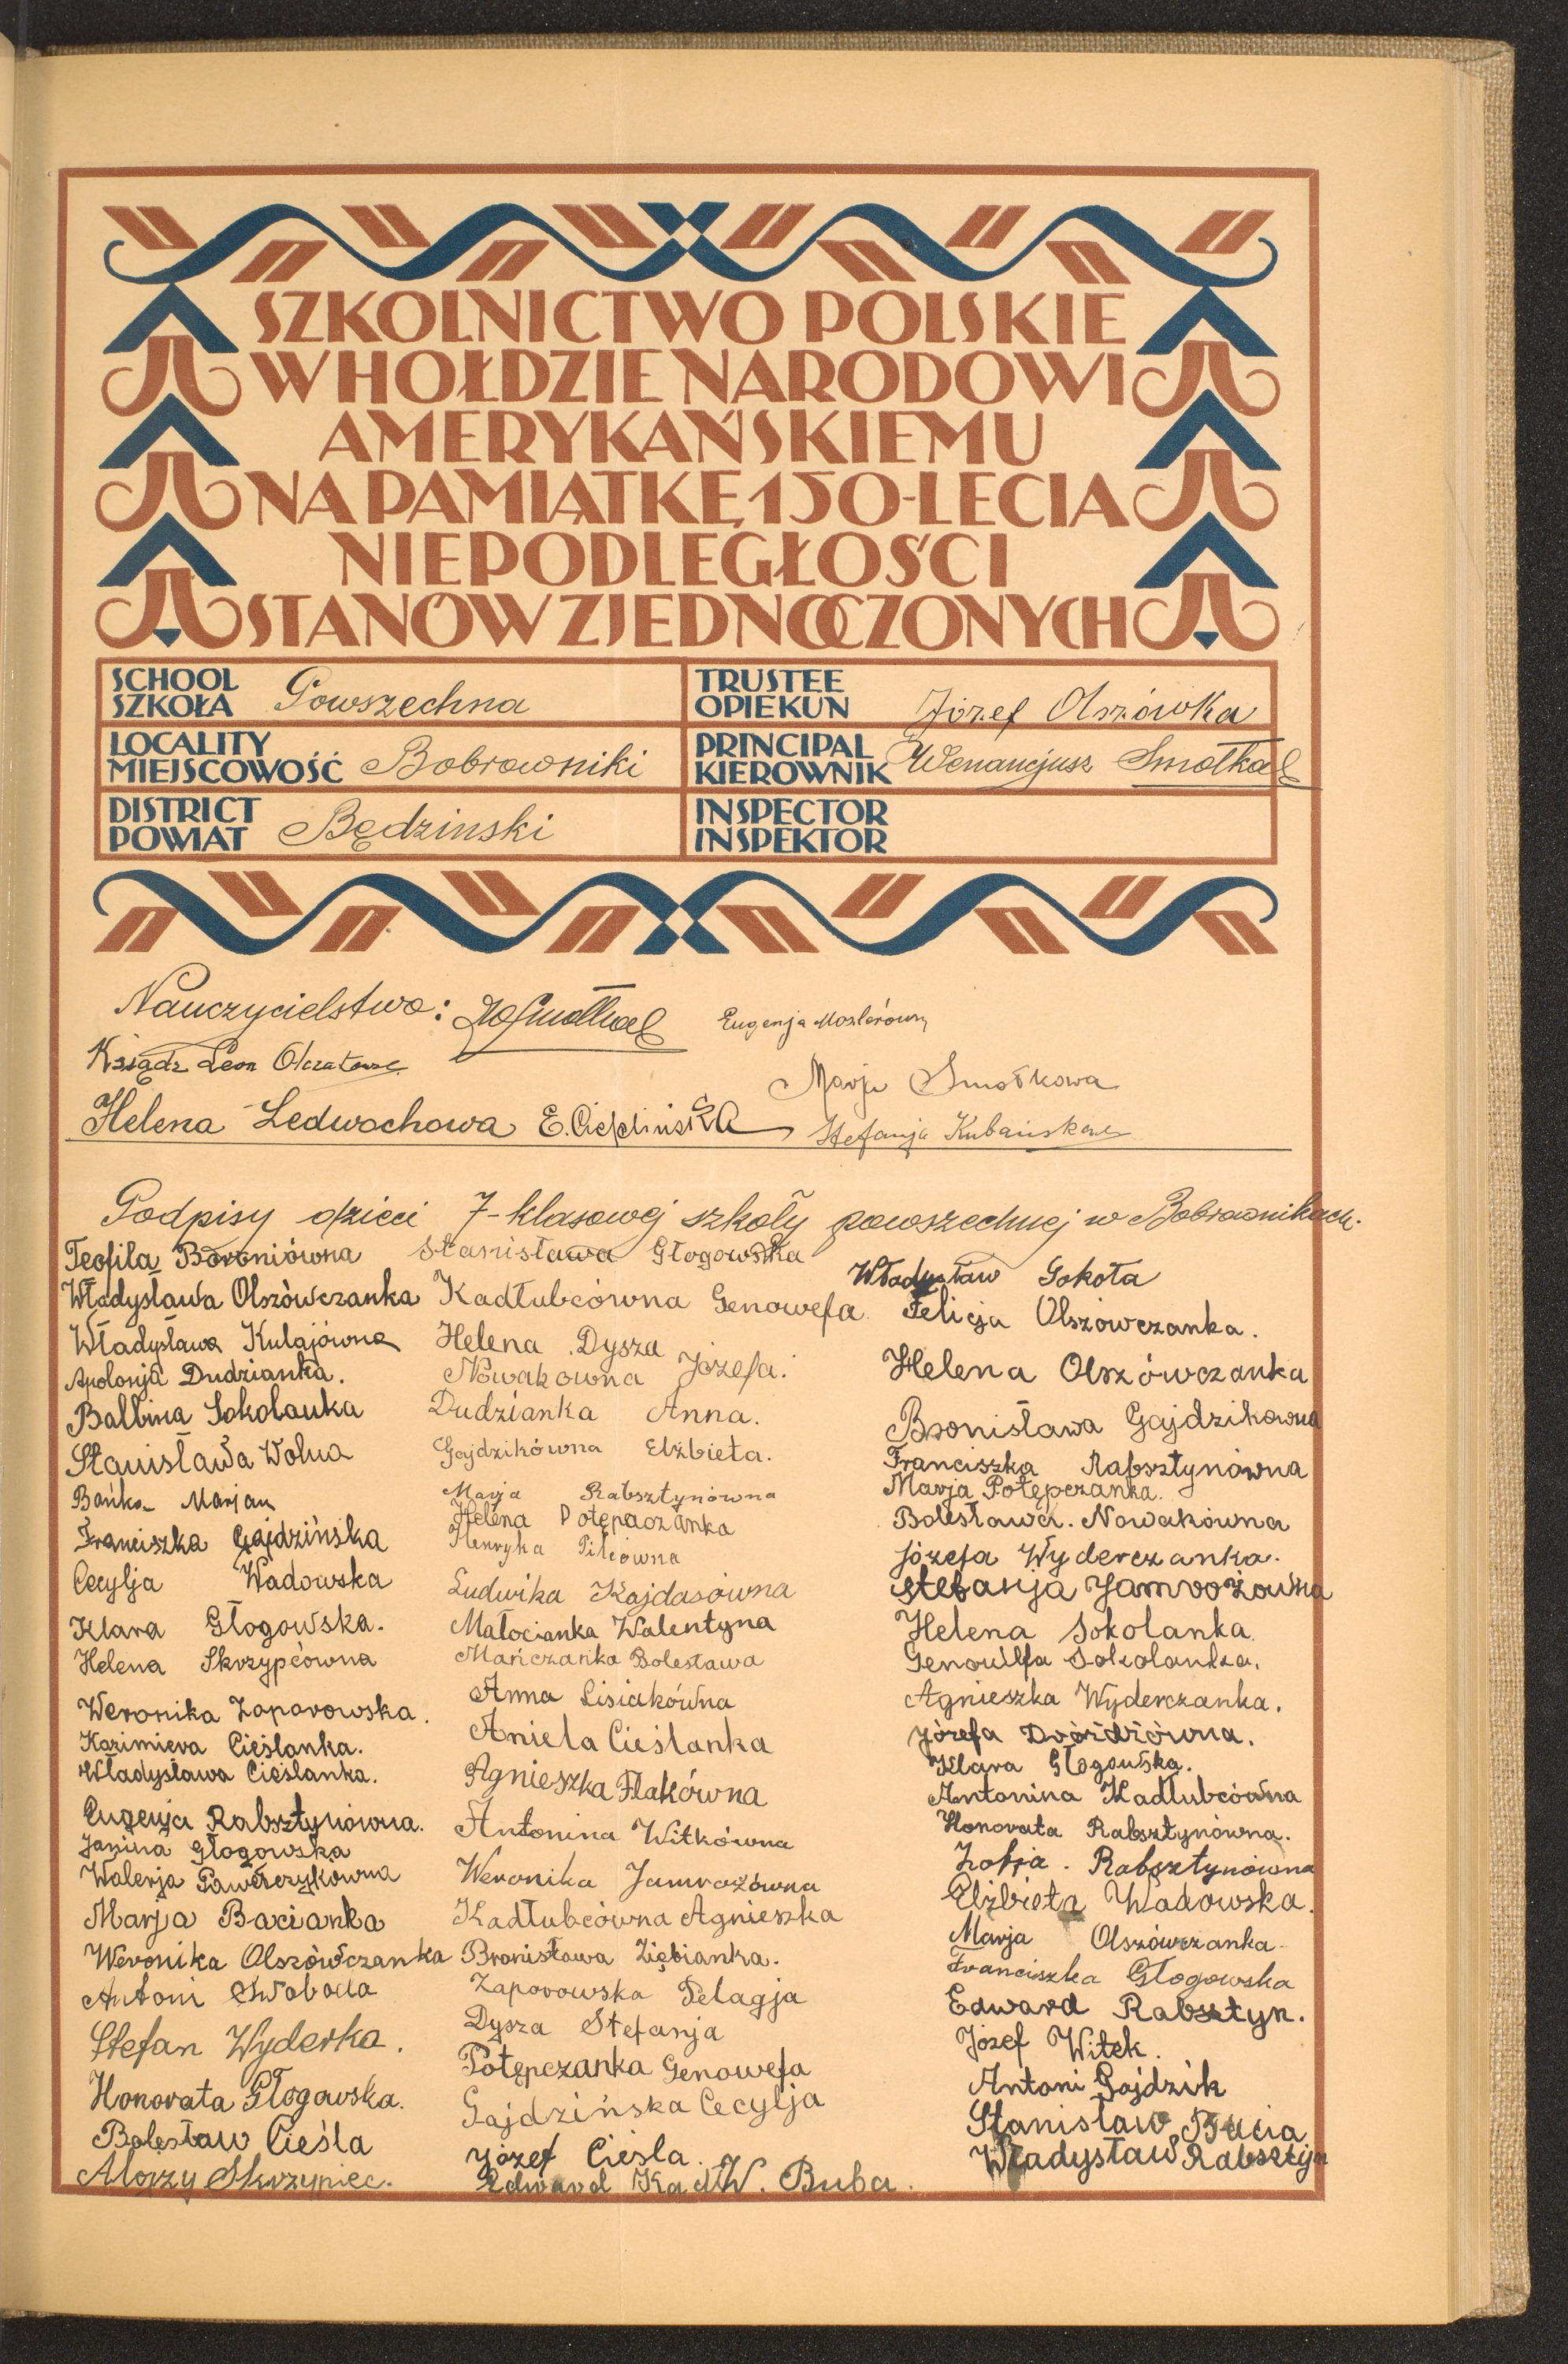 SZKOLNICTWO POLSKIE
W HOŁDZIE NARODOWI
AMERYKAŃSKIEMU
NA PAMIĄTKĘ 150-LECIA
NIEPODLEGŁOŚCI
STANÓW ZJEDNOCZONYCH
SCHOOL
SZKOŁA Powszechna
TRUSTEE
OPIEKUN Józef Olszówka
LOCALITY
MIEJSCOWOŚĆ Bobrowniki
PRINCIPAL
KIEROWNIK Wenancjusz Smołka
DISTRICT
POWIAT Będzinski
INSPECTOR
INSPEKTOR
Nauczycielstwo: WSmołka Eugenja
Ksiądz Leon
Marja Smołkowa
Helena Ledwochowa E. Cieplińska Stefanja
Podpisy dzieci 7-klasowej szkoły powszechnej w Bobrownikach.
Teofila Boroniówna
Władysława Olszówczanka
Władysława Kulajówna
Apolonja Dudzianka.
Balbina Sokolanka
Stanisława Wolna
Bańka Marjan
Franciszka Gajdzińska
Cecylja Wadowska
Klara Głogowska.
Helena Skrzypcówna
Weronika Zaporowska.
Kazimiera Cieślanka.
Władysława Cieślanka.
Eugenja Rabsztynówna.
Janina Głogowska
Walerja Pawerczykówna
Marja Bacianka
Weronika Olszówczanka
Antoni Swoboda
Stefan Wyderka.
Honorata Głogowska.
Bolesław Cieśla
Alojzy Skrzypiec.
Stanisława Głogowska
Kadłubcówna Genowefa
Helena Dysza
Nowakowna Józefa.
Dudzianka Anna.
Gajdzikówna Elżbieta.
Marja Rabsztynówna
Helena Potępaczanka
Henryka Pilcówna
Ludwika Kajdasówna
Małocianka Walentyna
Mańczanka Bolesława
Anna Lisiakówna
Aniela Cieślanka
Agnieszka Flakówna
Antonina Witkówna
Weronika Jamrozówna
Kadłubcówna Agnieszka
Bronisława Ziębianka.
Zaporowska Pelagja
Dysza Stefanja
Potępczanka Genowefa
Gajdzińska Cecylja
Józef Cieśla.
Edward Kad W. Buba.
Władysław Sokoła
Felicja Olszówczanka.
Helena Olszówczanka
Bronisława Gajdzikowna
Franciszka Rabsztynówna
Marja Potępczanka.
Bolesława. Nowakówna
Józefa Wyderczanka.
Stefanja Jamrożowna
Helena Sokolanka.
Genowefa Sokolanka.
Agnieszka Wyderczanka.
Józefa Dróżdżówna.
Klara Głogowska.
Antonina Kadłubcówna
Honorata Rabsztynówna.
Zofja. Rabsztynówna
Elżbieta Wadowska.
Marja Olszówczanka
Franciszka Głogowska
Edward Rabsztyn.
Józef Witek.
Antoni Gajdzik
Stanisław Bacia
Władysław Rabsztyn